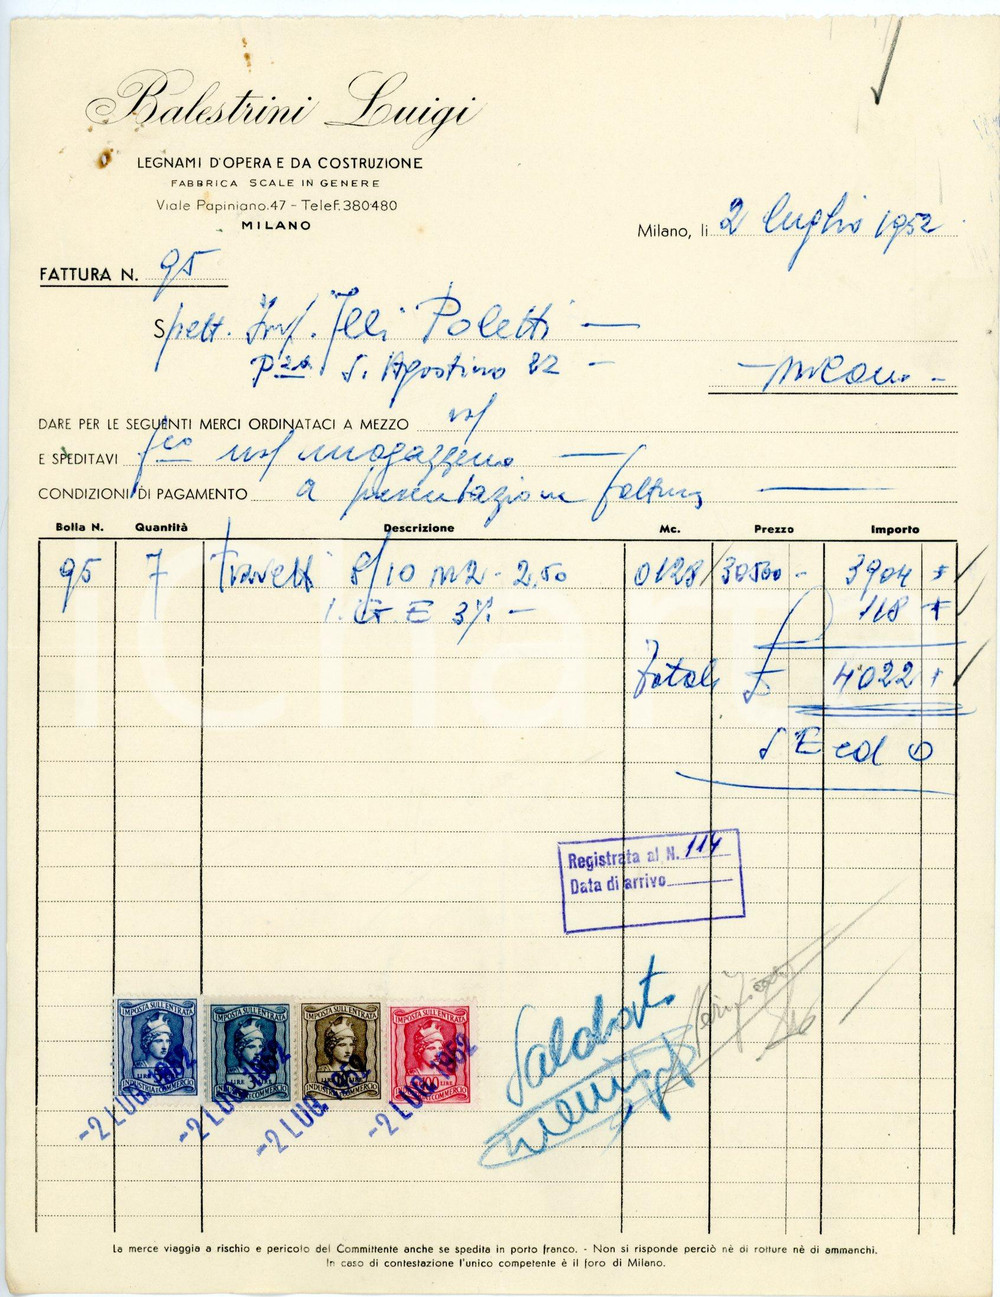 Balestrini Luigi
LEGNAMI D'OPERA E DA COSTRUZIONE
FABBRICA SCALE IN GENERE
Viale Papiniano.47 - Telef. 380480
MILANO
Milano, li 2 luglio 1952
FATTURA N. 95
Spett. Imp. F.lli Poletti
P.za S. Agostino 22 - Milano -
DARE PER LE SEGUENTI MERCI ORDINATACI A MEZZO
E SPEDITAVI fco magazzeno
CONDIZIONI DI PAGAMENTO a presentazione fattura
Bolla N. Quantità Descrizione Mc. Prezzo Importo
95 7 Travetti 8/10 m 2.50 0128 30500 - 3904
I.G.E 3% - 118
Totale £ 4022
S E ed O
Registrata al N. 114
Data di arrivo
Saldato
IMPOSTA SULL'ENTRATA IMPOSTA SULL'ENTRATA IMPOSTA SULL'ENTRATA IMPOSTA SULL'ENTRATA
LIRE LIRE LIRE
INDUSTRIA E COMMERCIO INDUSTRIA E COMMERCIO INDUSTRIA E COMMERCIO
-2 LUG. 1952 -2 LUG. 1952 -2 LUG. 1952 -2 LUG. 1952
La merce viaggia a rischio e pericolo del Committente anche se spedita in porto franco. - Non si risponde perciò nè di rotture nè di ammanchi.
In caso di contestazione l'unico competente è il foro di Milano.